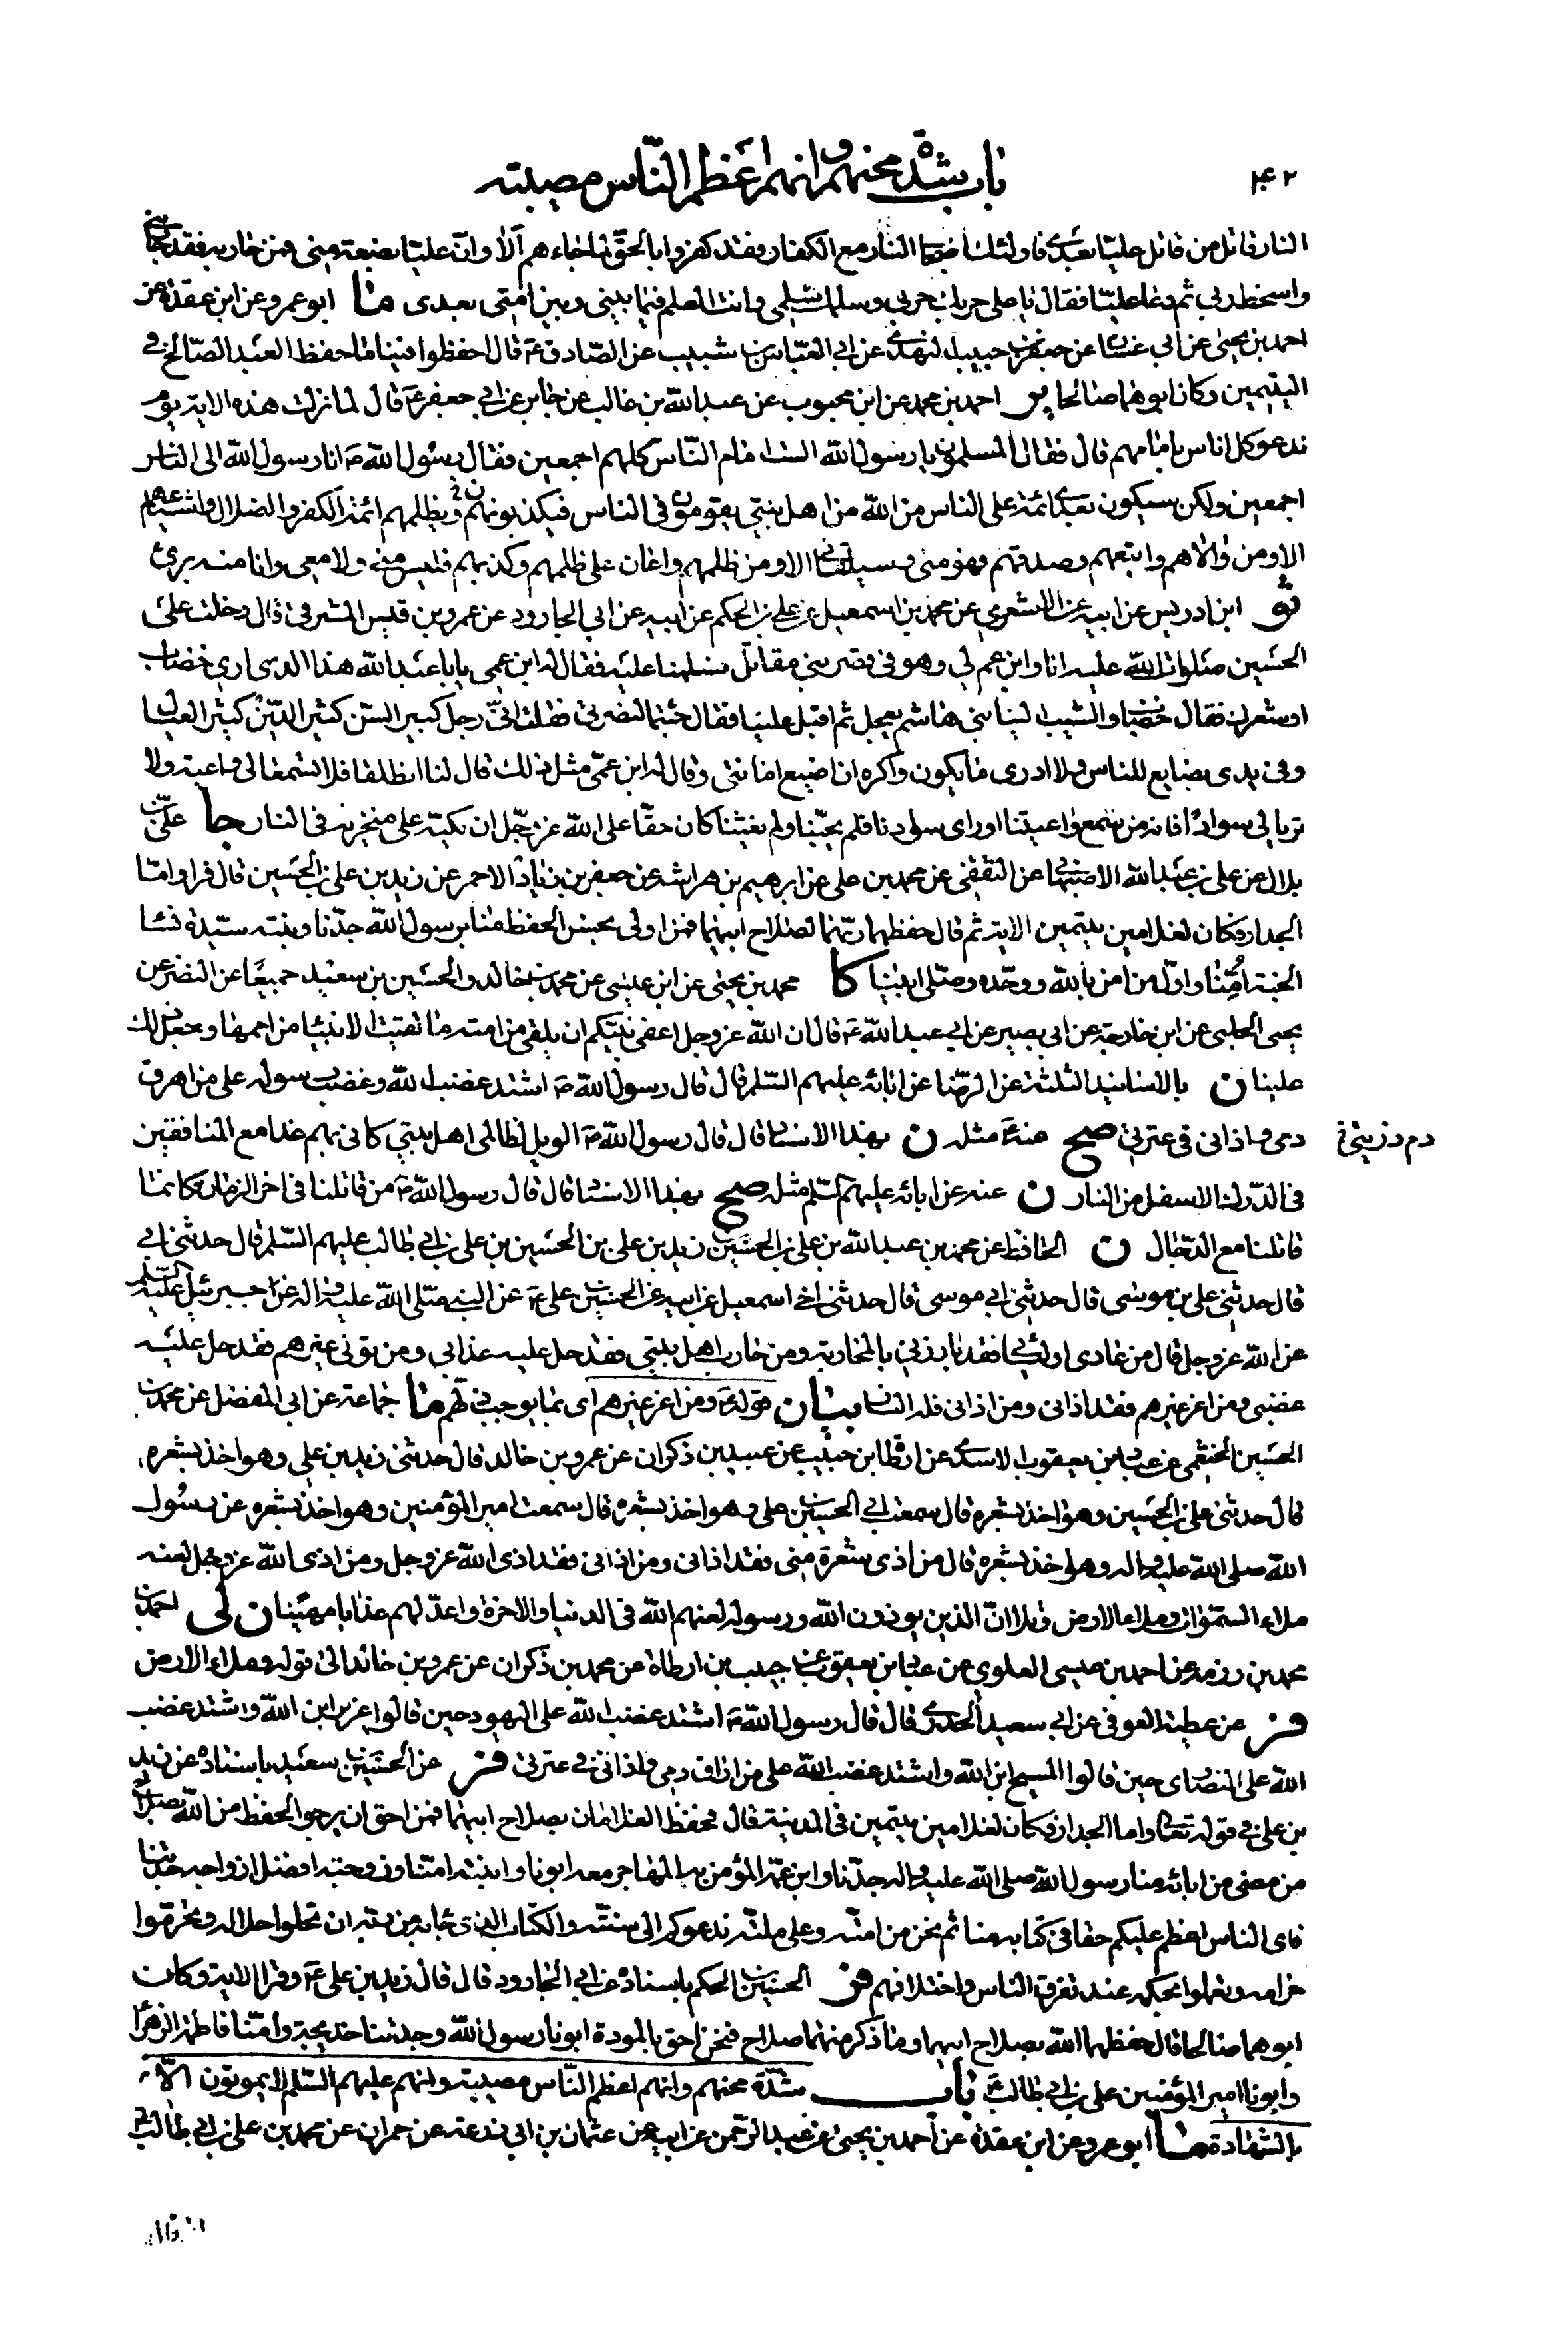 ۱۴۲
باب شدة محنهم وانهم اعظم الناس مصيبته
النار قاتل من قاتل عليا بعدى فاولئك اصحاب النار مع الكفار فقد كفروا بالحق لما جاءهم الا وان عليا بضعة منى فمن حاربه فقد حاربنى
واسخط ربى ثم دعا عليا فقال يا على حربك حربى وسلمك سلمى وانت العلم فيما بينى وبين امتى بعدى ما ابو عمرو عن ابن عقدة عن
احمد بن يحيى عن ابى غسان عن جعفر بن حبيب النهدى عن ابى العباس بن شبيب عن الصادق ع قال احفظوا فينا ما حفظ العبد الصالح فى
اليتيمين وكان ابوهما صالحا ير احمد بن محمد عن ابن محبوب عن عبد الله بن غالب عن جابر عن ابى جعفر ع قال لما نزلت هذه الاية يوم
ندعو كل اناس بامامهم قال فقال المسلمون يا رسول الله الست امام الناس كلهم اجمعين فقال رسول الله ص انا رسول الله الى الناس
اجمعين ولكن سيكون بعدى ائمة على الناس من الله من اهل بيتى يقومون فى الناس فيكذبونهم ويظلمهم ائمة الكفر والضلال واشياعهم
الا ومن والاهم واتبعهم وصدقهم فهو منى وسيلقانى الا ومن ظلمهم واعان على ظلمهم وكذبهم فليس منى ولا معى وانا منه برئ
ثو ابن ادريس عن ابيه عن الاشعرى عن محمد بن اسمعيل عن على بن الحكم عن ابيه عن ابى الجارود عن عمرو بن قيس المشرقى قال دخلت على
الحسين صلوات الله عليه انا وابن عم لى وهو فى قصر بنى مقاتل فسلمنا عليه فقال له ابن عمى يابا عبد الله هذا الذى ارى خضاب
او شعرك فقال خضاب والشيب الينا بنى هاشم يعجل ثم اقبل علينا فقال جئتما لنصرتى فقلت انى رجل كبير السن كثير الدين كثير العيال
وفى يدى بضايع للناس ولا ادرى ما يكون واكره ان اضيع امانتى وقال له ابن عمى مثل ذلك قال لنا انطلقا فلا تسمعا لى واعية ولا
تريا لى سوادا فانه من سمع واعيتنا او راى سوادنا فلم يجبنا ولم يغثنا كان حقا على الله عز وجل ان يكبه على منخريه فى النار جا على بن
بلال عن على بن عبد الله الاصبهانى عن الثقفى عن محمد بن على عن ابرهيم بن هراشه عن جعفر بن زياد الاحمر عن زيد بن على بن الحسين قال قرا واما
الجدار فكان لغلامين يتيمين الاية ثم قال حفظهما ربهما لصلاح ابيهما فمن اولى بحسن الحفظ منا رسول الله جدنا وبنته سيدة نساء
الجنة امنا واول من امن بالله ووحده وصلى ابونا كا محمد بن يحيى عن ابن عيسى عن محمد بن خالد والحسين بن سعيد جميعا عن النضر عن
يحيى الحلبى عن ابن خارجة عن ابى بصير عن ابى عبد الله ع قال ان الله عز وجل اعفى نبيكم ان يلقى من امته ما لقيت الانبيا من اممها وجعل ذلك
علينا ن بالاسانيد الثلثة عن الرضا عن ابائه عليهم السلم قال قال رسول الله ص اشتد غضب الله وغضب رسوله على من اهرق
دمى واذانى فى عترتى صح عنه ع مثله ن بهذا الاسناد قال قال رسول الله ص الويل لظالمى اهل بيتى كانى بهم غدا مع المنافقين
فى الدرك الاسفل من النار ن عنه عن ابائه عليهم السلم مثله صح بهذا الاسناد قال قال رسول الله ص من قاتلنا فى اخر الزمان فكانما
قاتلنا مع الدجال ن الحافظ عن محمد بن عبد الله بن على بن الحسين بن زيد بن على بن الحسين بن على بن ابى طالب عليهم السلم قال حدثنى ابى
قال حدثنى على بن موسى قال حدثنى ابى موسى قال حدثنى اخى اسمعيل عن ابيه عن الحسين بن على ع عن النبى صلى الله عليه واله عن جبرئيل عليه السلم
عن الله عز وجل قال من عادى اوليائى فقد بارزنى بالمحاربة ومن حارب اهل بيتى فقد حل عليه عذابى ومن تولى غيرهم فقد حل عليه
غضبى ومن اعز غيرهم فقد اذانى ومن اذانى فله النار بيان قوله ع ومن اعز غيرهم اى بما يوجب ذلهم ما جماعة عن ابى المفضل عن محمد بن
الحسين الخثعمى عن عباد بن يعقوب الاسدى عن ارطاة بن حبيب عن عبيد بن ذكران عن عمرو بن خالد قال حدثنى زيد بن على وهو اخذ بشعره
قال حدثنى على بن الحسين وهو اخذ بشعره قال سمعت ابى الحسين بن على وهو اخذ بشعره قال سمعت امير المؤمنين وهو اخذ بشعره عن رسول
الله صلى الله عليه واله وهو اخذ بشعره قال من اذى شعرة منى فقد اذانى ومن اذانى فقد اذى الله عز وجل ومن اذى الله عز وجل لعنه
ملاء السموات وملاء الارض وتلا ان الذين يوذون الله ورسوله لعنهم الله فى الدنيا والاخرة واعد لهم عذابا مهينا ن لى احمد بن
محمد بن رزمه عن احمد بن عيسى العلوى عن عباد بن يعقوب عن حبيب بن ارطاة عن محمد بن ذكران عن عمرو بن خالد الى قوله وملاء الارض
فر عن عطية العوفى عن ابى سعيد الخدرى قال قال رسول الله ص اشتد غضب الله على اليهود حين قالوا عزير ابن الله واشتد غضب
الله على النصارى حين قالوا المسيح ابن الله واشتد غضب الله على من اراق دمى واذانى فى عترتى فر عن الحسين بن سعيد باسناده عن زيد
بن على فى قوله تعالى واما الجدار فكان لغلامين يتيمين فى المدينة قال فحفظ الغلامان بصلاح ابيهما فمن احق ان يرجو الحفظ من الله بصلاح
من مضى من ابائه منا رسول الله صلى الله عليه واله جدنا وابن عمه المؤمن به المهاجر معه ابونا وابنته امنا وزوجته افضل ازواجه جدتنا
فاى الناس اعظم عليكم حقا فى كتابه منا ثم نحن من امته وعلى ملته ندعوكم الى سنته والكتاب الذى جاء به من ربه ان تحلوا حلاله وتحرموا
حرامه وتعملوا بحكمه عند تفرق الناس واختلافهم فر الحسين بن الحكم باسناده عن ابى الجارود قال قال زيد بن على ع وقرا الاية وكان
ابوهما صالحا قال حفظهما الله بصلاح ابيهما وما ذكر منهما صلاح فنحن احق بالمودة ابونا رسول الله وجدتنا خديجة وامنا فاطمة الزهرا
وابونا امير المؤمنين على بن ابى طالب ع باب شدة محنهم وانهم اعظم الناس مصيبة وانهم عليهم السلم لا يموتون الا
بالشهادة ما ابو عمرو عن ابن عقدة عن احمد بن يحيى عن عبد الرحمن عن ابيه عن عثمان بن ابى زرعة عن حمران عن محمد بن على بن ابى طالب